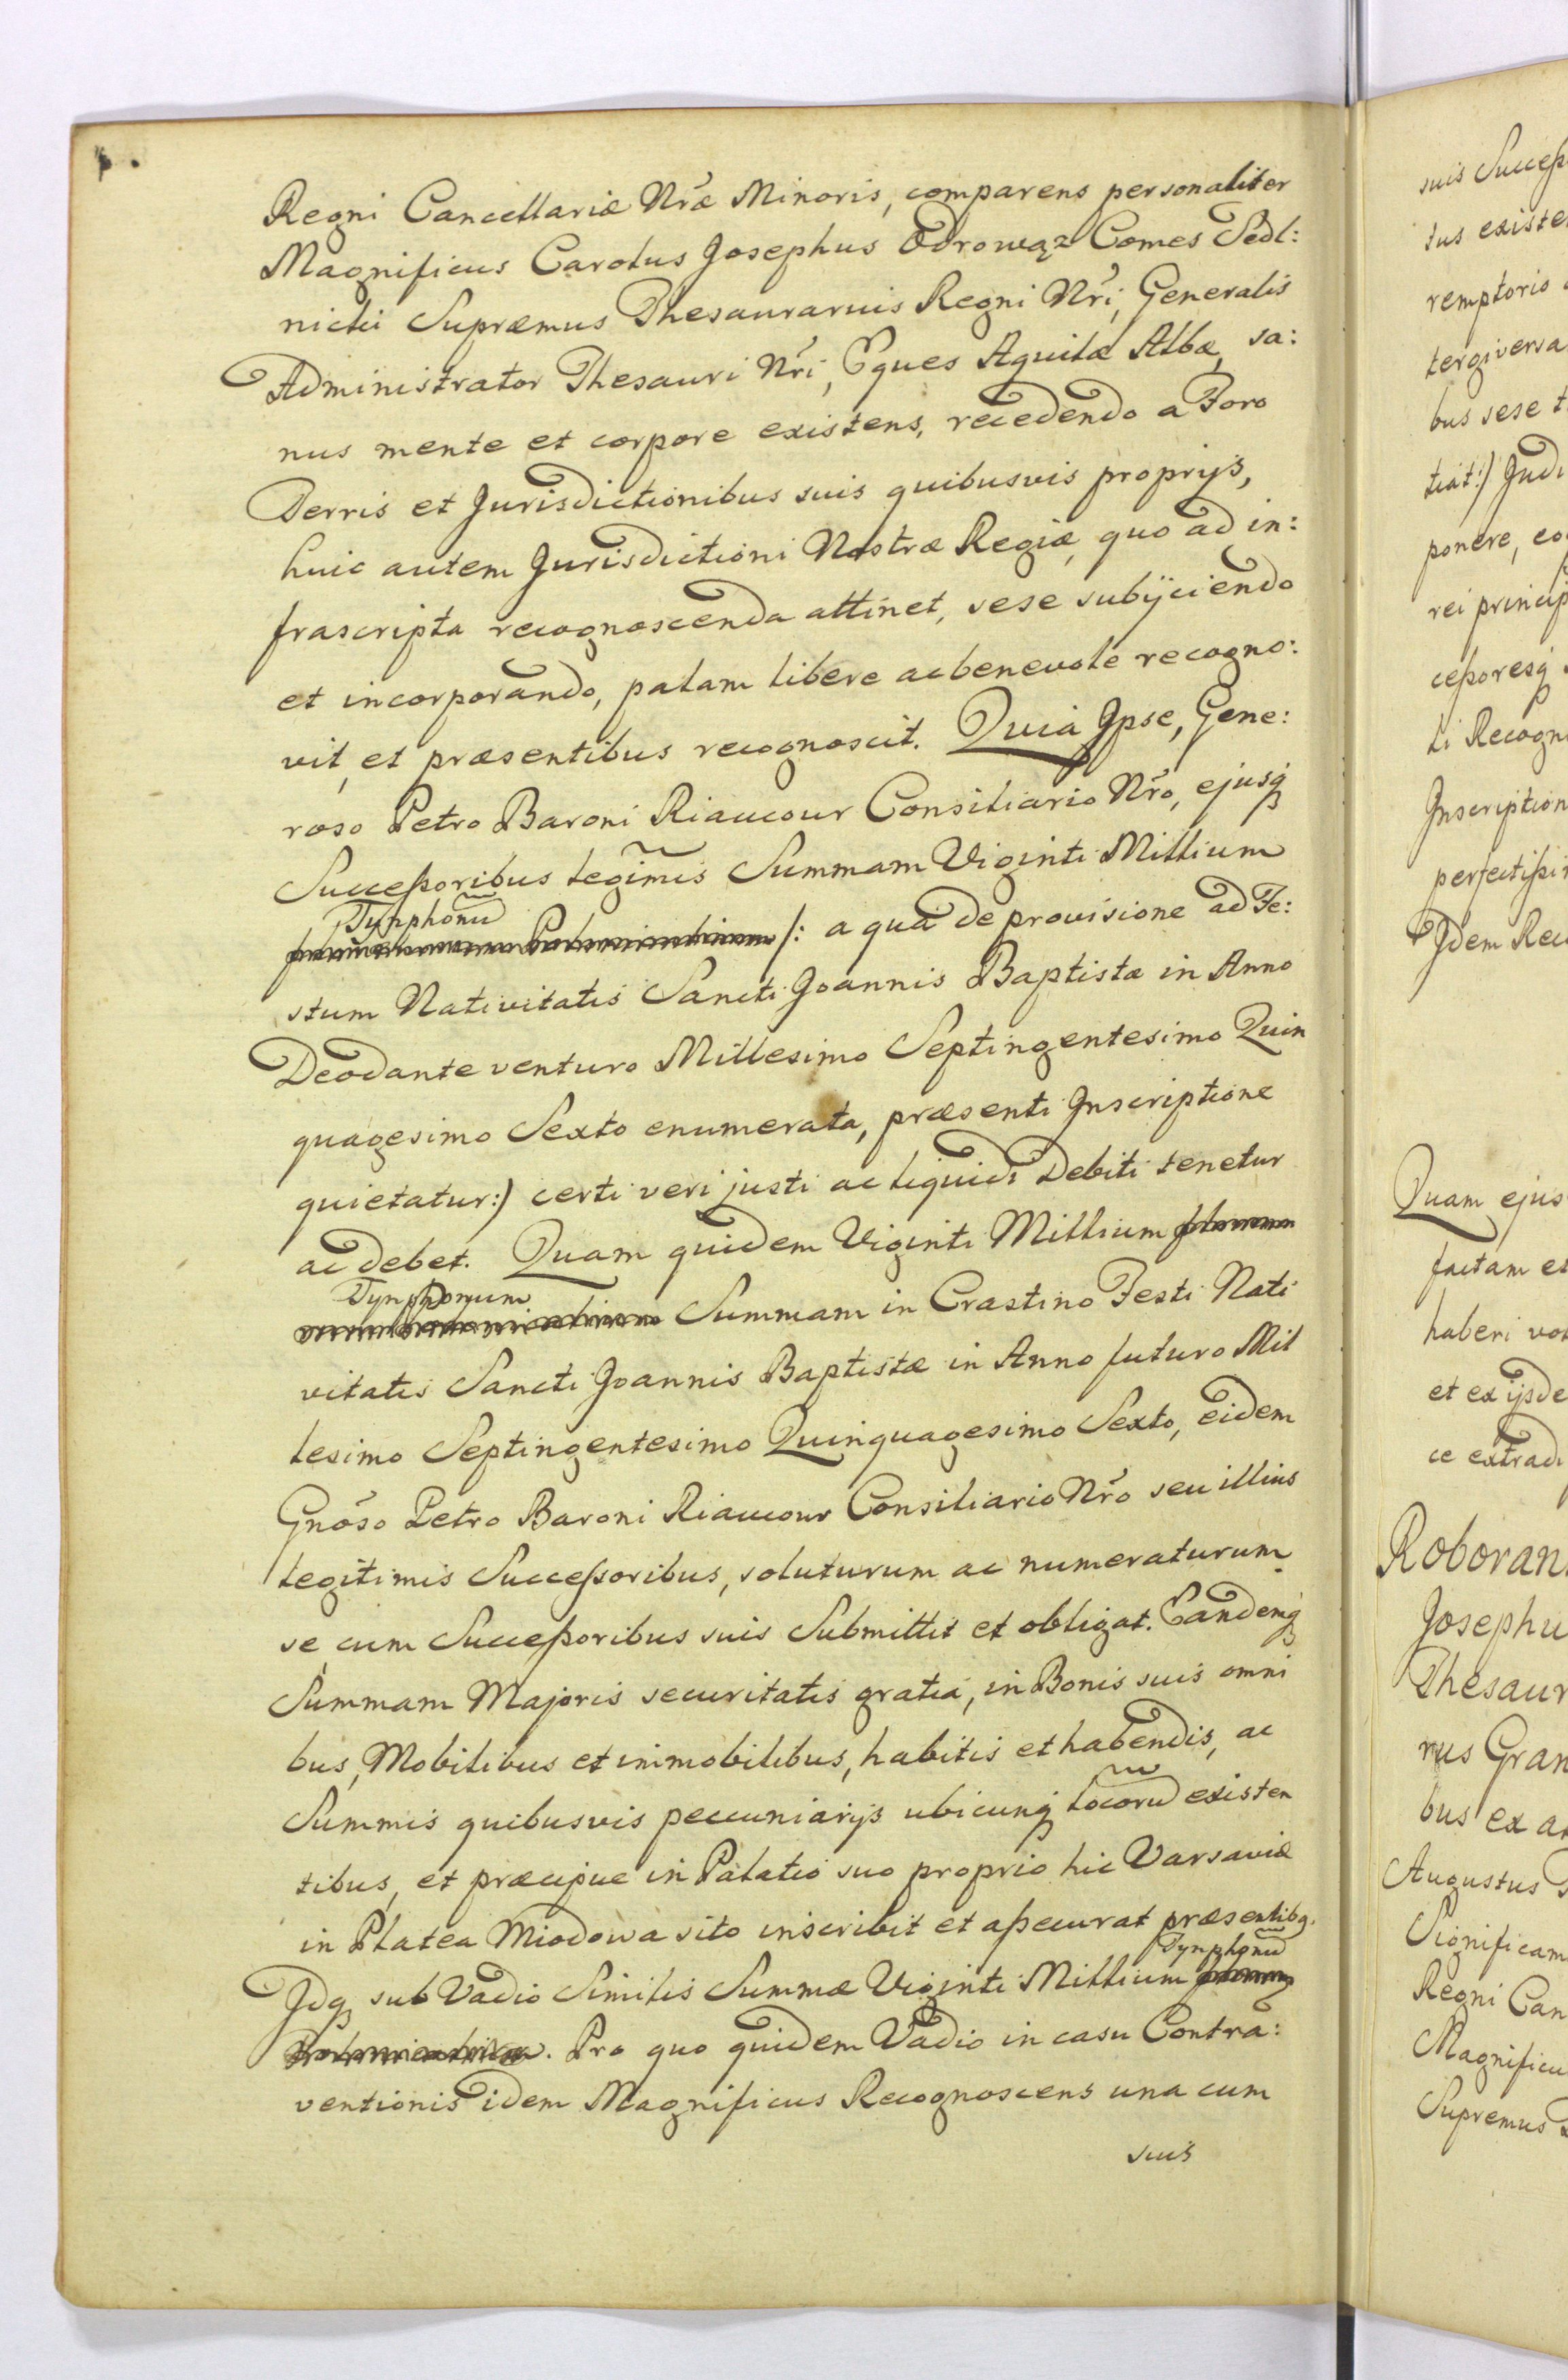 Regni Cancellariæ Nr̃æ Minoris, comparens personaliter
Magnificus Carolus Josephus Odrowąz Comes Sedl:
nicki Supræmus Thesaurarius Regni Nr̃i, Generalis
Administrator Thesauri Nr̃i, Eques Aquilæ Albæ, sa:
nus mente et corpore existens, recedendo a Foro
Terris et Jurisdictionibus suis quibusvis proprijs,
huic autem Jurisdictioni Nostræ Regiæ, quo ad in:
frascripta recognoscenda attinet, sese subijciendo
et incorporando, palam libere ac benevole recogno:
vit, et præsentibus recognoscit. Quia Ipse, Gene:
roso Petro Baroni Riaucour Consiliario Nr̃o, ejusq̃
Succeßoribus legim̃is Summam Viginti Millium
Tynphonũ
/: a qua de provisione ad Fe:
stum Nativitatis Sancti Joannis Baptistæ in Anno
Deo dante venturo Millesimo Septingentesimo Quin
quagesimo Sexto enumerata, præsenti Inscriptione
quietatur:) certi veri justi ac liquidi Debiti tenetur
ac debet. Quam quidem Viginti Millium
Tynphonum
Summam in Crastino Festi Nati
vitatis Sancti Joannis Baptistæ in Anno futuro Mil
lesimo Septingentesimo Quinquagesimo Sexto, eidem
Gnõso Petro Baroni Riaucour Consiliario Nr̃o seu illius
legitimis Succeßoribus, soluturum ac numeraturum
se cum Succeßoribus suis Submittit et obligat. Eandemq̃
Summam Majoris securitatis gratia, in Bonis suis omni
bus, Mobilibus et immobilibus, habitis et habendis, ac
Summis quibusvis pecuniarijs ubicunq̃ locorũ existen
tibus, et præcipue in Palatio suo proprio hic Varsaviæ
in Platea Miodowa sito inscribit et aßecurat præsentibq.
Tynphonũ
Idq̃ sub Vadio Similis Summæ Viginti Millium
. Pro quo quidem Vadio in casu Contra:
ventionis idem Magnificus Recognoscens una cum
suis
suis Succeß
tus existe
remptorio
tergiversa
bus sese t
tiat:) Judi
ponere, eo
rei princip
ceßoresq̃
ti Recogn
Inscription
perfectißi
Idem Rec
Quam ejus
factam et
haberi vo
et ex ijsde
ce extradi
Roboran
Josephu
Thesaur
rus Gran
bus ex a
Augustus
Significam
Regni Can
Magnificu
Supremus